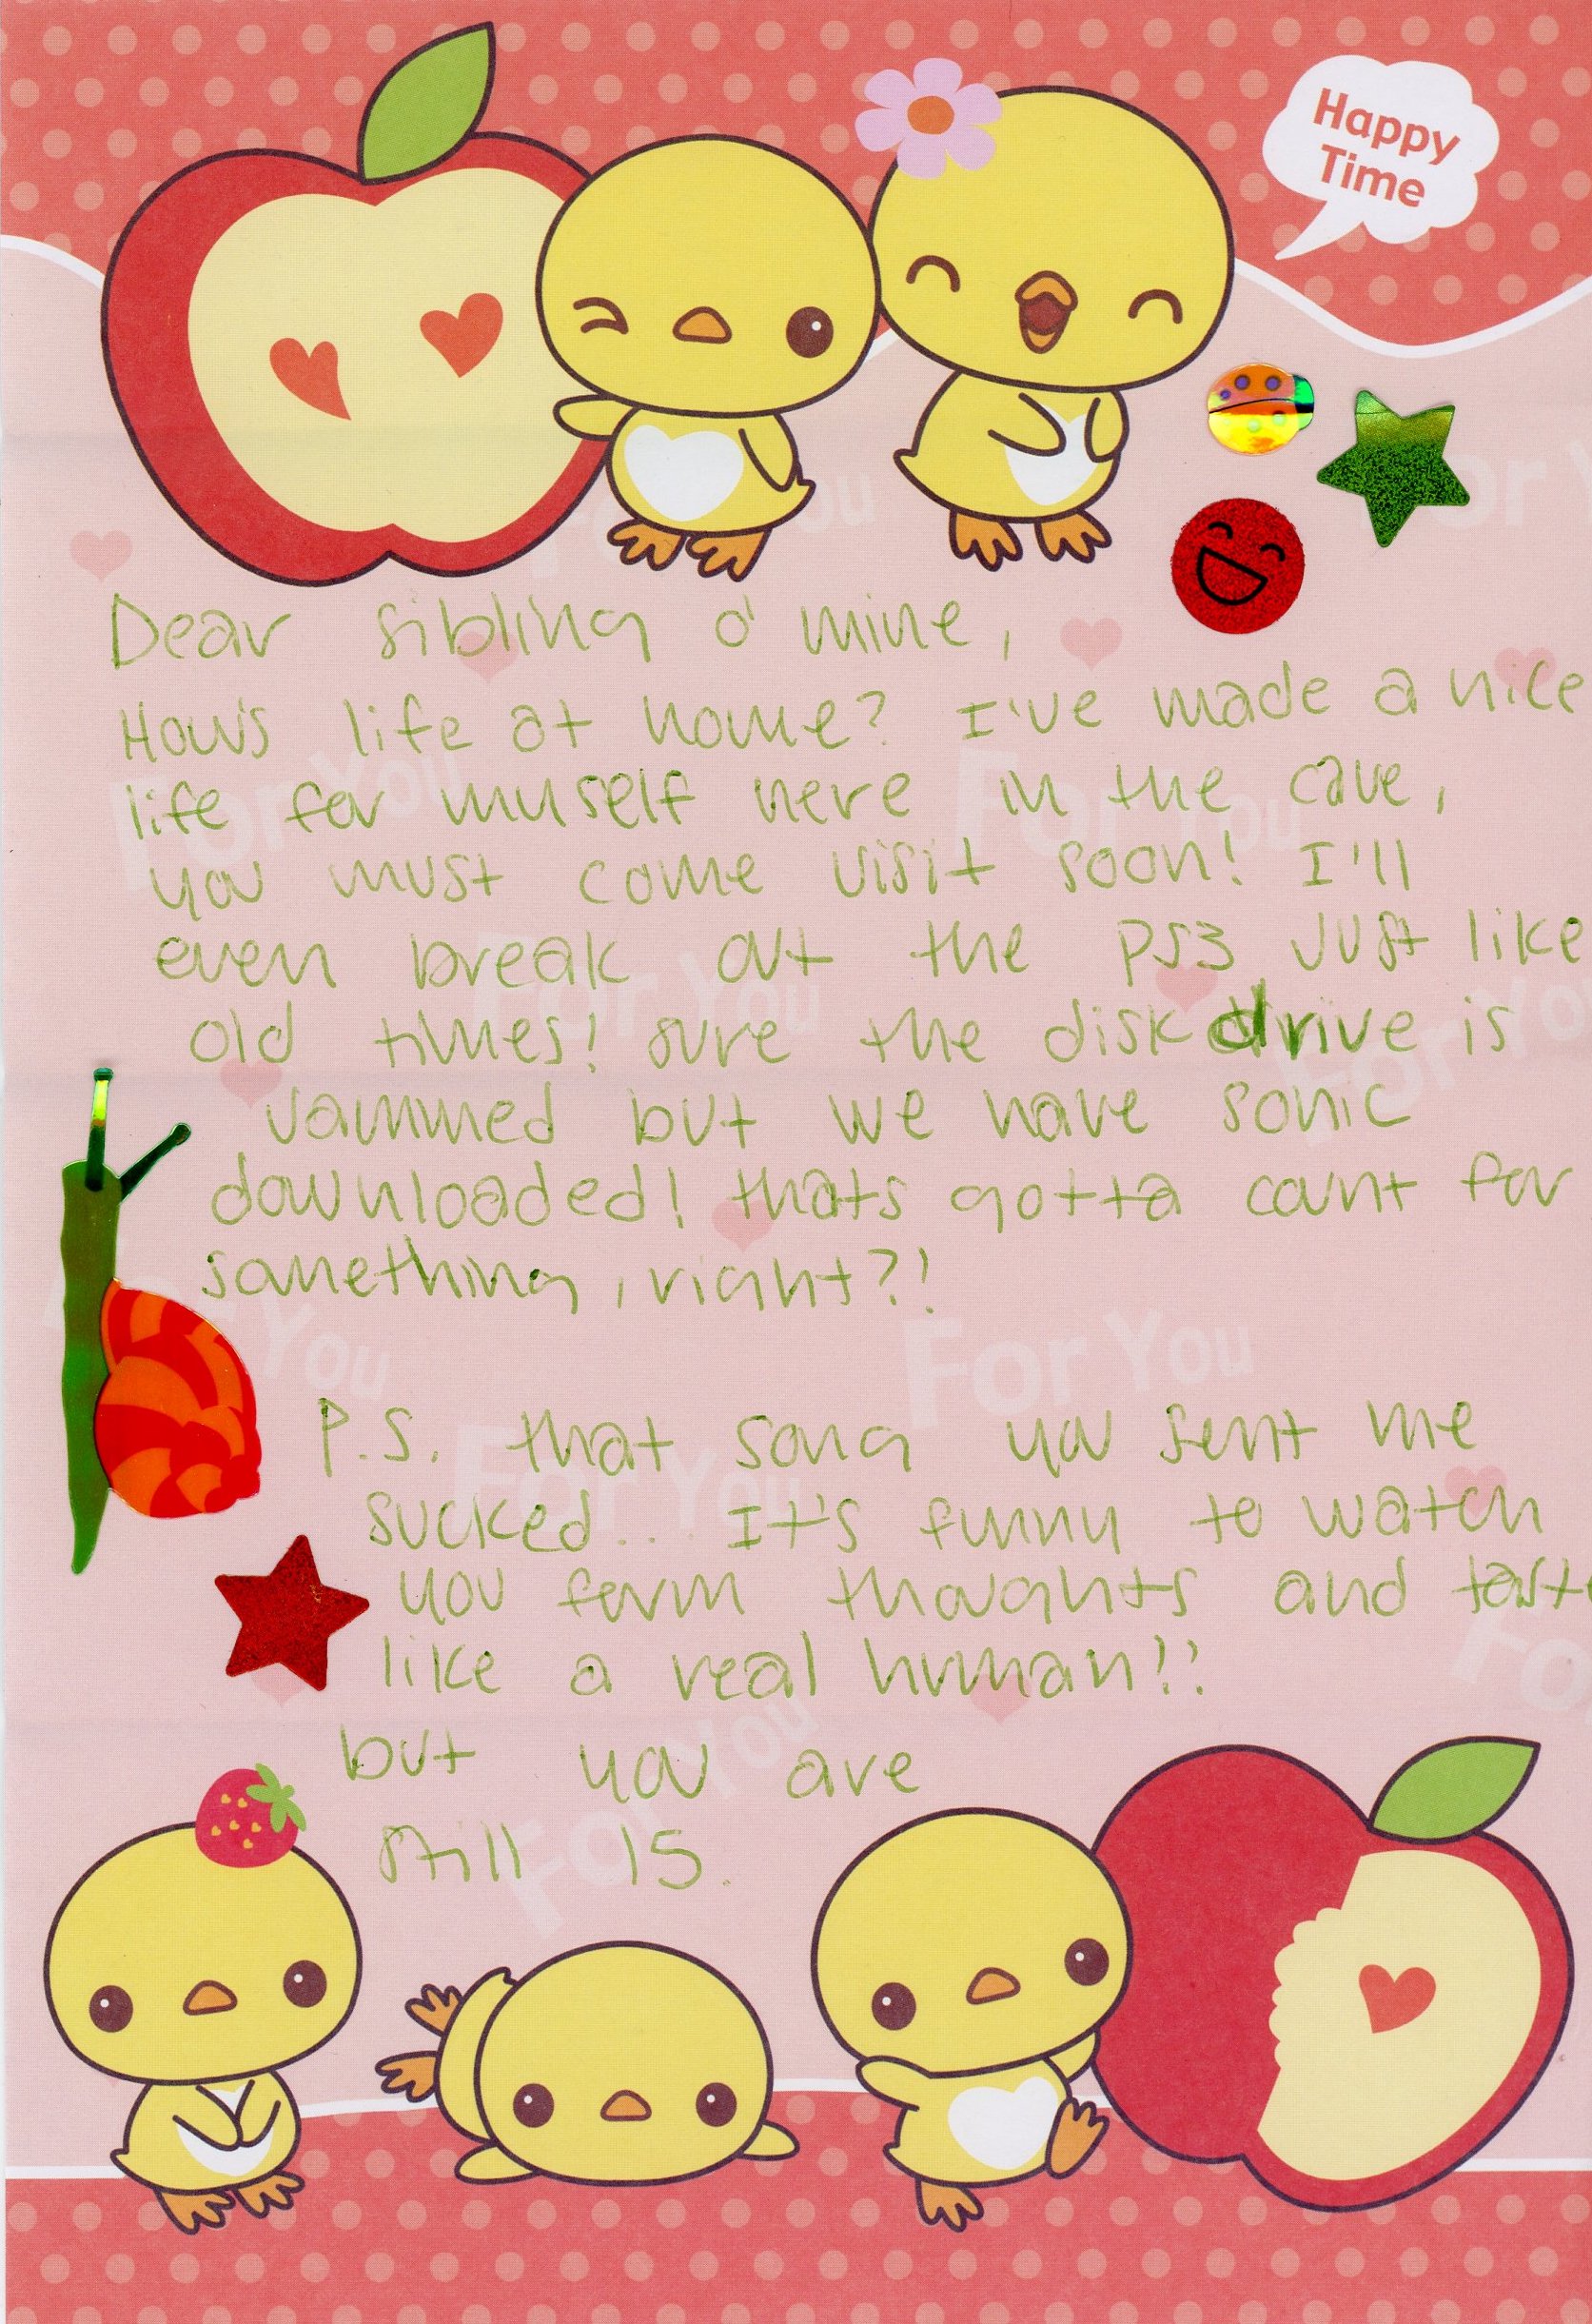 Happy
Time
Dear sibling o' mine,
How's life at home? I've made a nice
life for myself here in the cave,
you must come visit soon! I'll
even break out the PS3 just like
old times! sure the disk drive is
jammed but we have sonic
downloaded! thats gotta count for
something, right?!
P.S. that song you sent me
sucked.. It's funny to watch
you form thoughts and taste
like a real human!!
but you are
still 15.
For You
For You
For You
For You
For You
For You
For You
For You
For You
For You